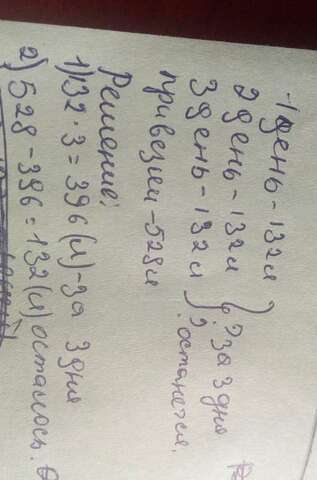 1 день - 132 л
2 день - 132 л } ? за 3 дня
3 день - 132 л ? останется.
привезли - 528 л
Решение:
1) 132 · 3 = 396 (л) - за 3 дня
2) 528 - 396 = 132 (л) осталось.